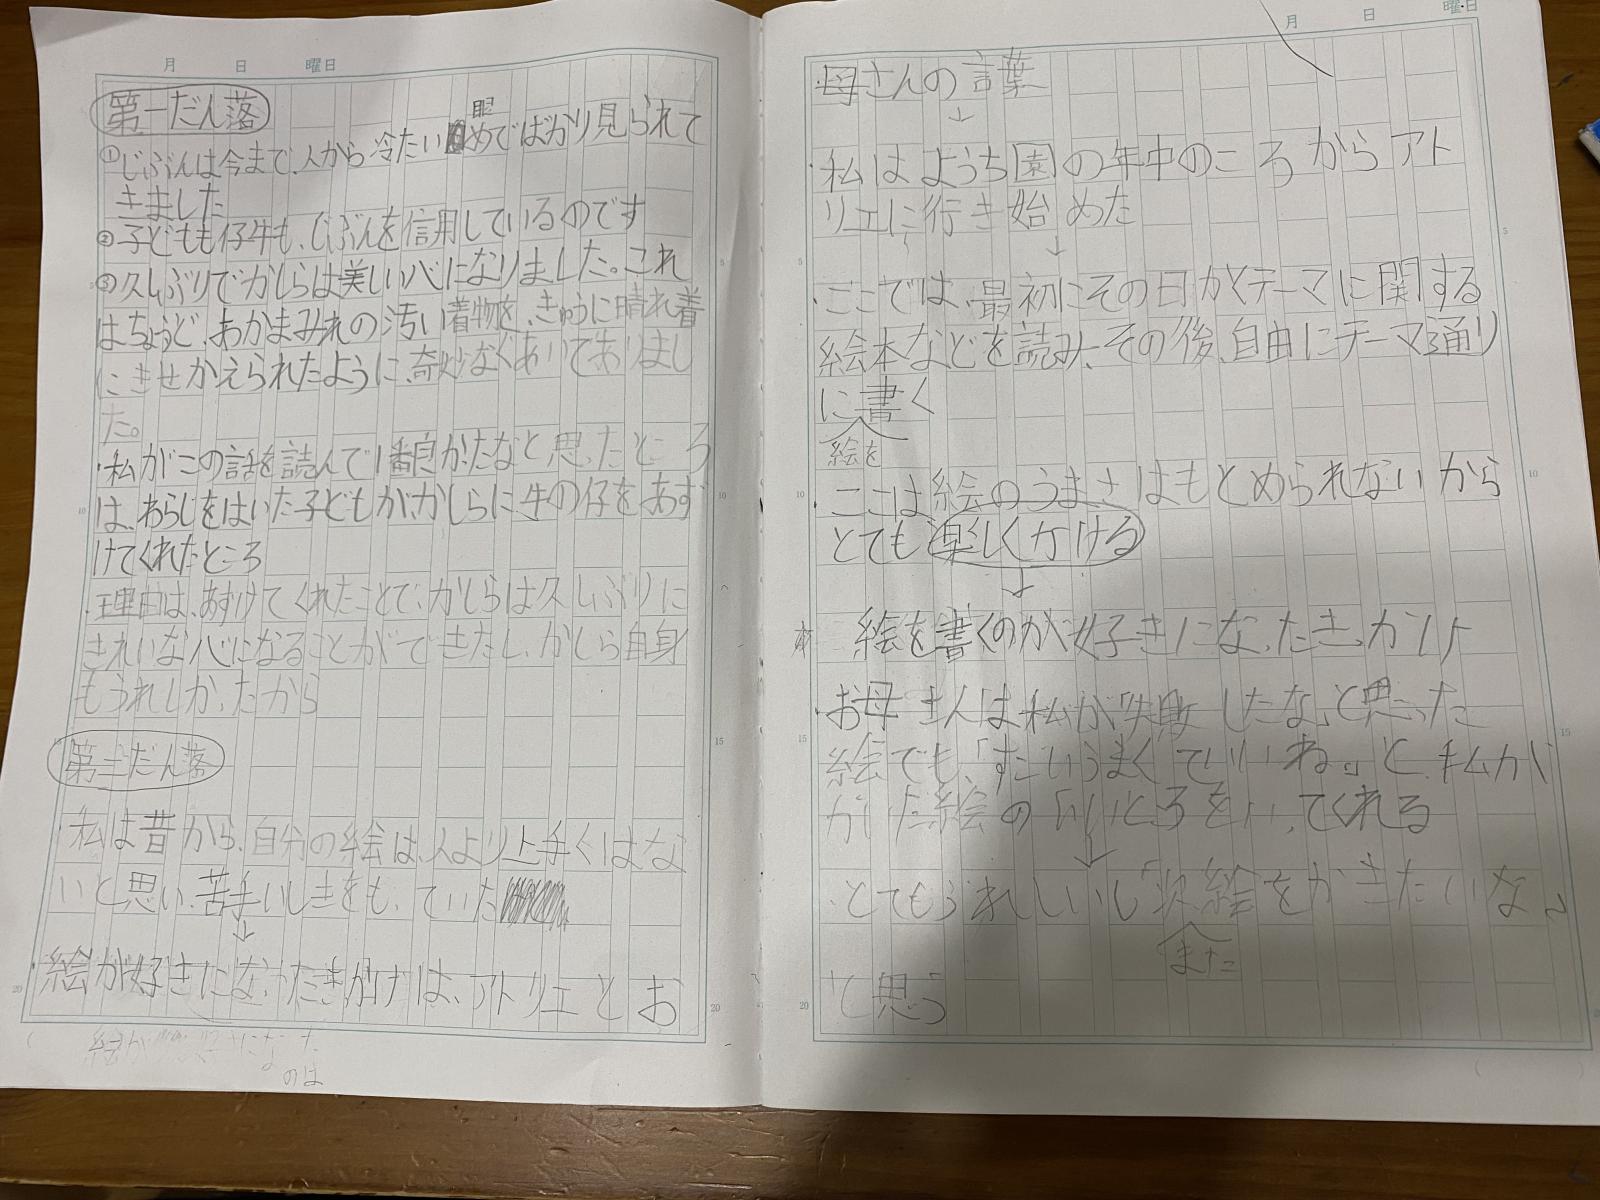 月 日 曜日
第一だん落
①じぶんは今まで、人から冷たい眼めでばかり見られて
きました
②子どもも仔牛も、じぶんを信用しているのです
③久しぶりでかしらは美しい心になりました。これ
はちょうど、あかまみれの汚い着物を、きゅうに晴れ着
にきせかえられたように、奇妙なくあいてありまし
た。
・私がこの話を読んで1番良かたなと思ったところ
は、わらじをはいた子どもが、かしらに牛の仔をあず
けてくれたところ
・理由は、あずけてくれたことで、かしらは久しぶりに
きれいな心になることができたし、かしら自身
もうれしかったから
第二だん落
・私は昔から、自分の絵は、人より上手くはな
いと思い、苦手いしきをもっていた
↓
・絵が好きになったきっかけは、アトリエとお
絵が
のは
月 日 曜日
母さんの言葉
↓
・私はようち園の年中のころからアト
リエに行き始めた
↓
・ここでは、最初にその日がくテーマに関する
絵本などを読み、その後、自由にテーマ通り
に書く
絵を
・ここは絵のうまさはもとめられないから
とても楽しくかける
↓
絵を書くのが好きになったきっかけ
・お母さんは私が「失敗したな」と思った
絵でも、「すごいうまくていいね。」と私が
かいた絵のいいところをいってくれる
↓
・とてもうれしいし「次絵をかきたいな」
また
と思う